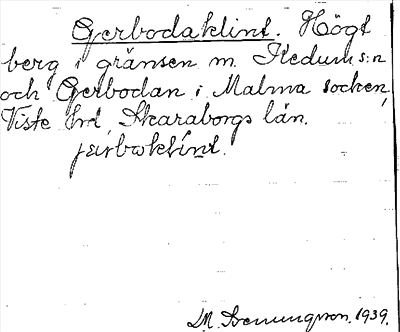 Gerbodaklint. Högt
berg i gränsen m. Kedums:n
och Gerbodan i Malma socken,
Viste hd, Skaraborgs län.
jærboklínt.